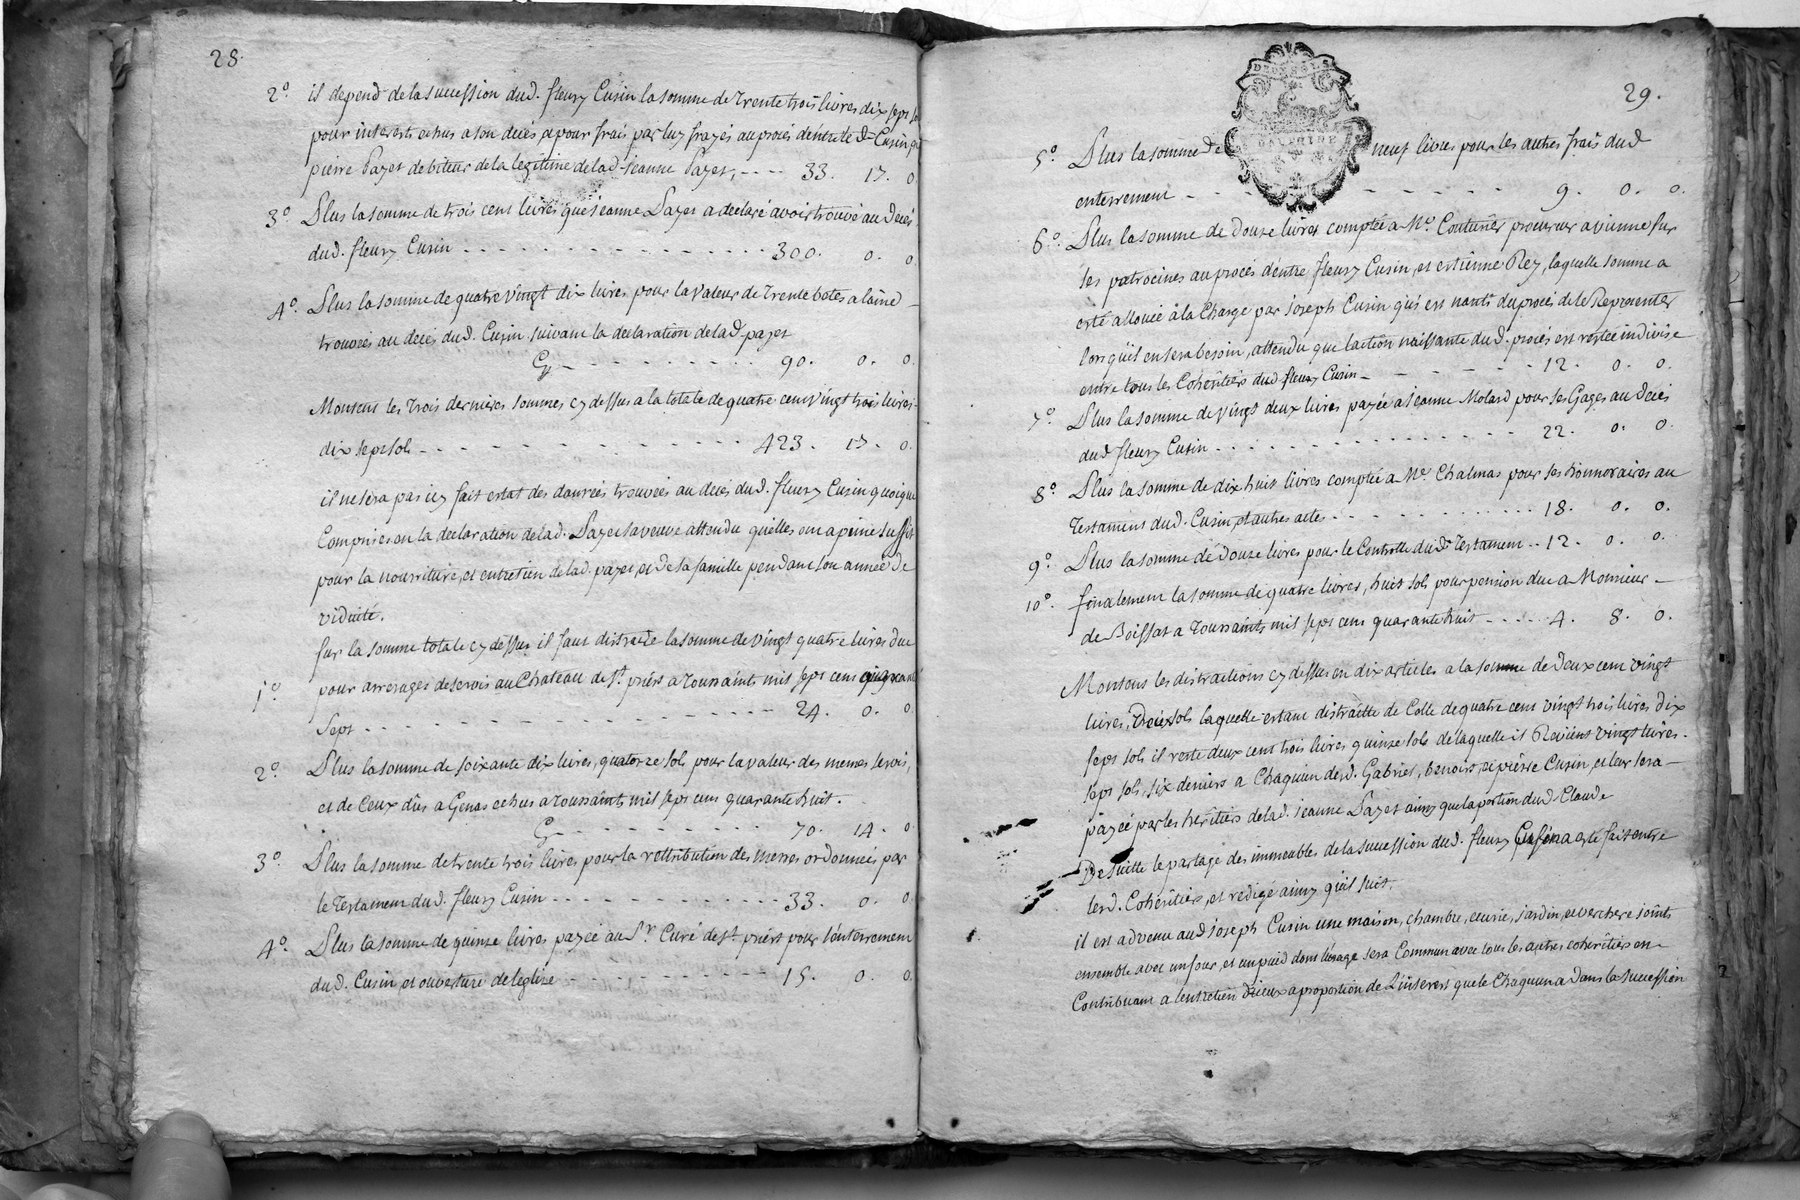 28.
2.° il depend de la succession dud. fleury Cusin la somme de trente trois livres dix sept
pour interests echus a son decés, et pour frais par luy frayés au procés d'entre le d.
pierre Payet debiteur de la legitime de lad. jeanne Payet, - - - - 33. 17. 0
3.° Plus la somme de trois cent livres que jeanne Payet a declaré avoir trouvé au decés
dud. fleury Cusin - - - - - - - - - - 300. 0. 0
4.° Plus la somme de quatre vingt dix livres pour la valeur de trente betes a laine
trouvées au decés dud. Cusin suivant la declaration de lad. payet
Cy - - - - - - - - - - 90. 0. 0
Montent les trois dernieres sommes cy dessus a la totale de quatre cent vingt trois livres
dix sept sols - - - - - - - - - - 423. 17. 0
il ne sera pas icy fait estat des danrées trouvées au decés dud. fleury Cusin quoique
Comprises en la declaration de lad. Payet sa veuve attendu qu'elles ont a peine suffit
pour la nourriture, et entretien de lad. payet, et de sa famille pendant son année de
viduité.
sur la somme totale cy dessus il faut distraire la somme de vingt quatre livres due
1.° pour arrerages de servis au Chateau de S.t priest a toussaints mil sept cent quarante
Sept - - - - - - - - - - 24. 0. 0
2.° Plus la somme de soixante dix livres, quatorze sols pour la valeur des memes servis,
et de Ceux dûs a Genas echus a toussaints mil sept cens quarante huit.
Cy - - - - - - - - - - 70. 14. 0
3.° Plus la somme de trente trois livres pour la rettribution des messes ordonnées par
le testament dud. fleury Cusin - - - - - - - - - - 33. 0. 0
4.° Plus la somme de quinze livres payée au S.r Curé de S.t priest pour l'enterrement
dud. Cusin, et ouverture de leglise - - - - - - - - - - 15. 0. 0
29.
5.° Plus la somme de neuf livres pour les autres frais dud
enterrement - - - - - - - - 9. 0. 0.
6.° Plus la somme de douze livres comptée a M.e Couturier procureur a vienne sur
ses patrocines au procés d'entre fleury Cusin, et estienne Rey, laquelle somme a
esté allouée à la Charge par joseph Cusin qui est nanti du procés de le Representer
lors qu'il en sera besoin, attendu que l'action naissante dud. procés est restée indivise
entre tous les Cohéritiers dud fleury Cusin - - - - - - 12. 0. 0.
7.° Plus la somme de vingt deux livres payée a jeanne Molard pour ses Gages au decés
dud fleury Cusin - - - - - - - - - - 22. 0. 0
8.° Plus la somme de dix huit livres comptée a M.e Chalmas pour ses honnoraires au
testament dud. Cusin, et autres actes - - - - - - - - - - 18. 0. 0.
9.° Plus la somme de douze livres pour le Controlle dud. testament - - 12. 0. 0.
10.° finalement la somme de quatre livres, huit sols pour pension due a Monsieur
de Boissat a toussaints mil sept cens quarante huit - - - - - 4. 8. 0.
Montent les distractions cy dessus en dix articles a la somme de deux cent vingt
livres, deux sols laquelle estant distraitte de Celle de quatre cent vingt trois livres dix
sept sols il reste deux cent trois livres quinze sols de laquelle il Revient vingt livres
sept sols, six deniers a Chaquun desd. Gabriel, benoist, et pierre Cusin, et leur sera
payée par les héritiers de lad. jeanne Payet ainsy que la portion dud Claude
De suitte le partage des immeubles de la succession dud. fleury Cusin a esté fait entre
lesd. Cohéritiers, et redigé ainsy qu'il suit.
il est advenu aud joseph Cusin une maison, chambre, ecurie, jardin, et verchere joints
ensemble avec un four, et un puid dont l'usage sera Commun avec tous les autres coheritiers en
Contribuant a lentretien d'iceux a proportion de L'interest que le Chaquun a dans la succession